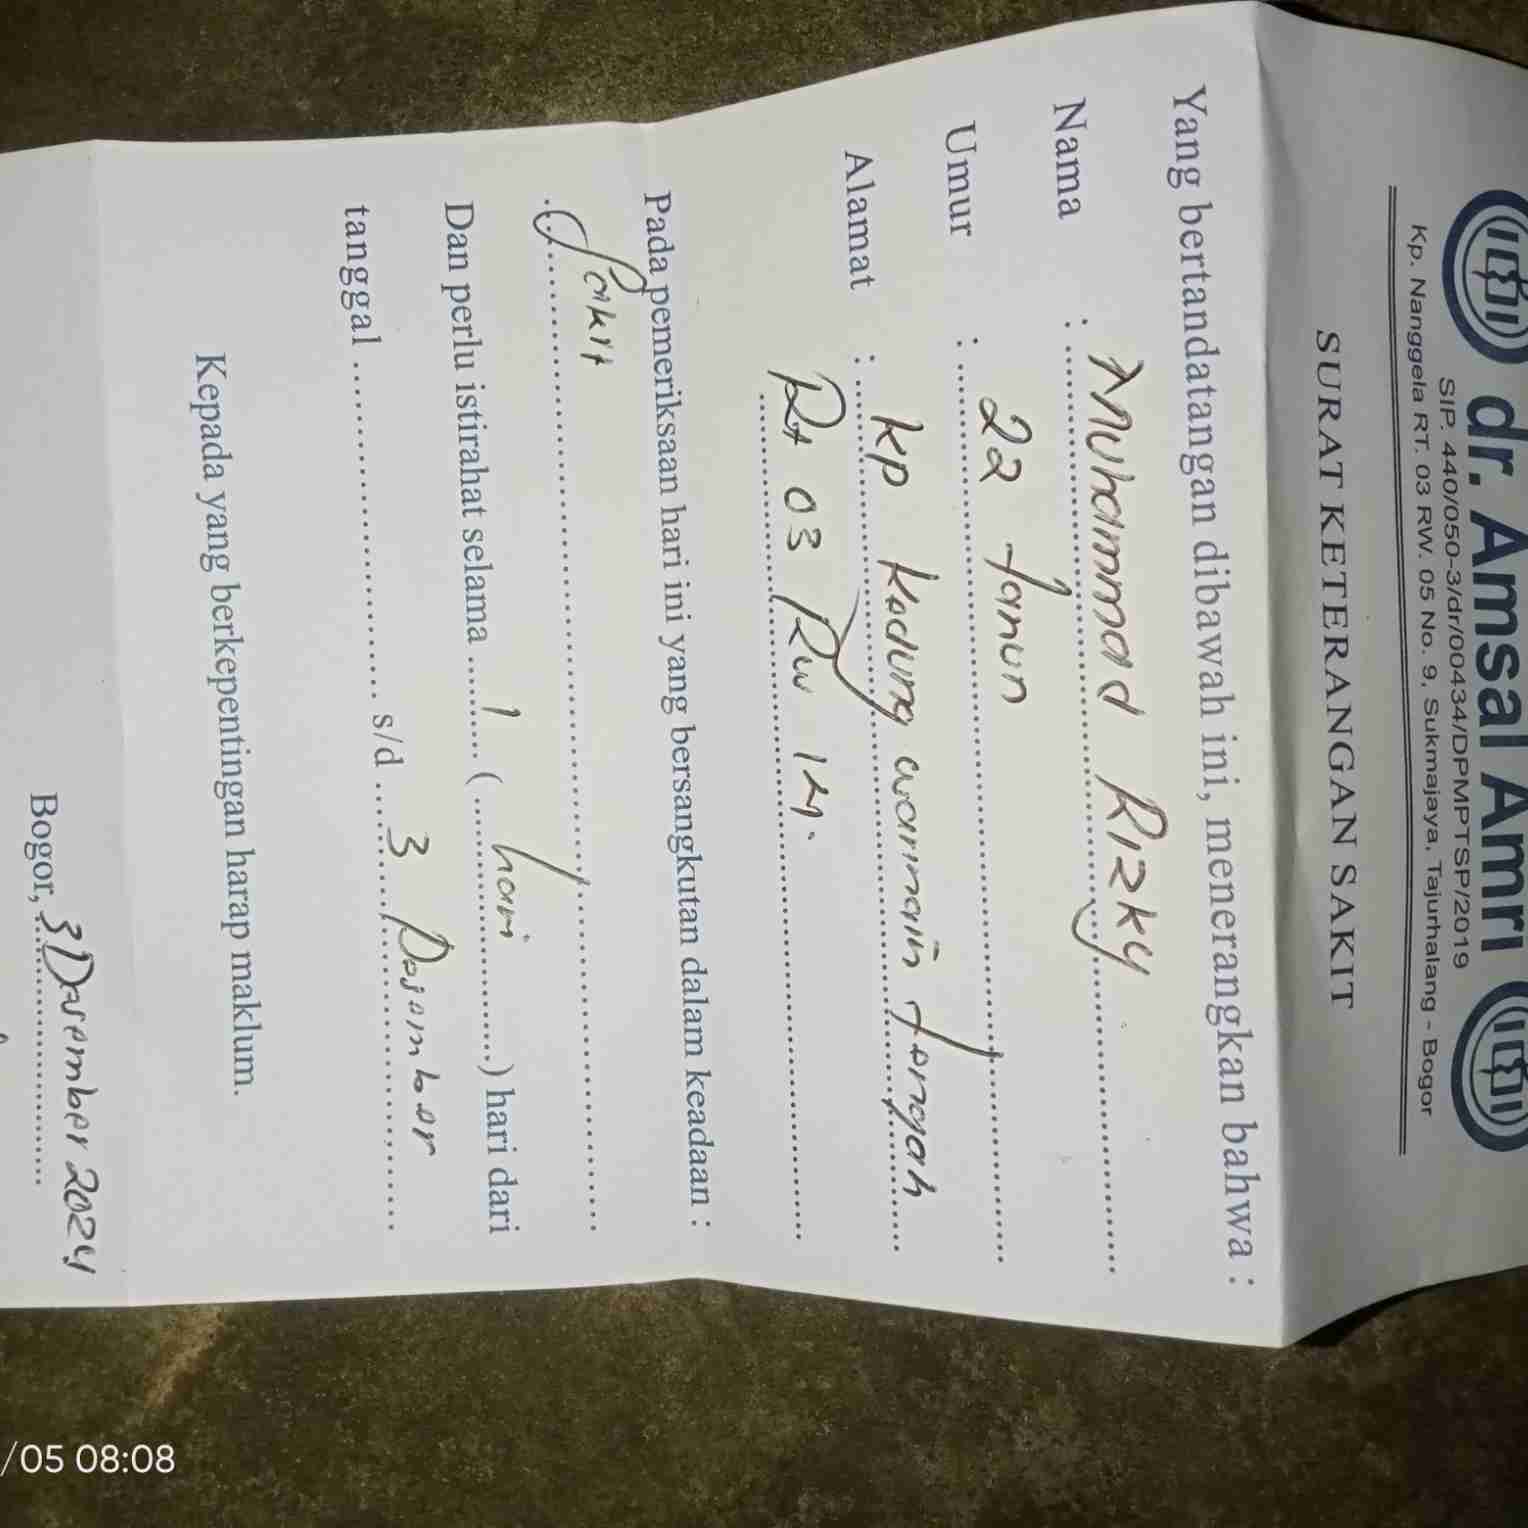 dr. Amsal Amri
SIP. 440/050-3/dr/00434/DPMPTSP/2019
Kp. Nanggela RT. 03 RW. 05 No. 9, Sukmajaya, Tajurhalang - Bogor
SURAT KETERANGAN SAKIT
Yang bertandatangan dibawah ini, menerangkan bahwa :
Nama : Muhammad Rizky
Umur : 22 tahun
Alamat : kp kedung waringin tengah
Rt 03 Rw 14.
Pada pemeriksaan hari ini yang bersangkutan dalam keadaan :
Sakit
Dan perlu istirahat selama ..... 1 ..... ( ..... hari ..... ) hari dari
tanggal ........................ s/d ..... 3 Desember .....
Kepada yang berkepentingan harap maklum.
Bogor, 3 Desember 2024
/05 08:08